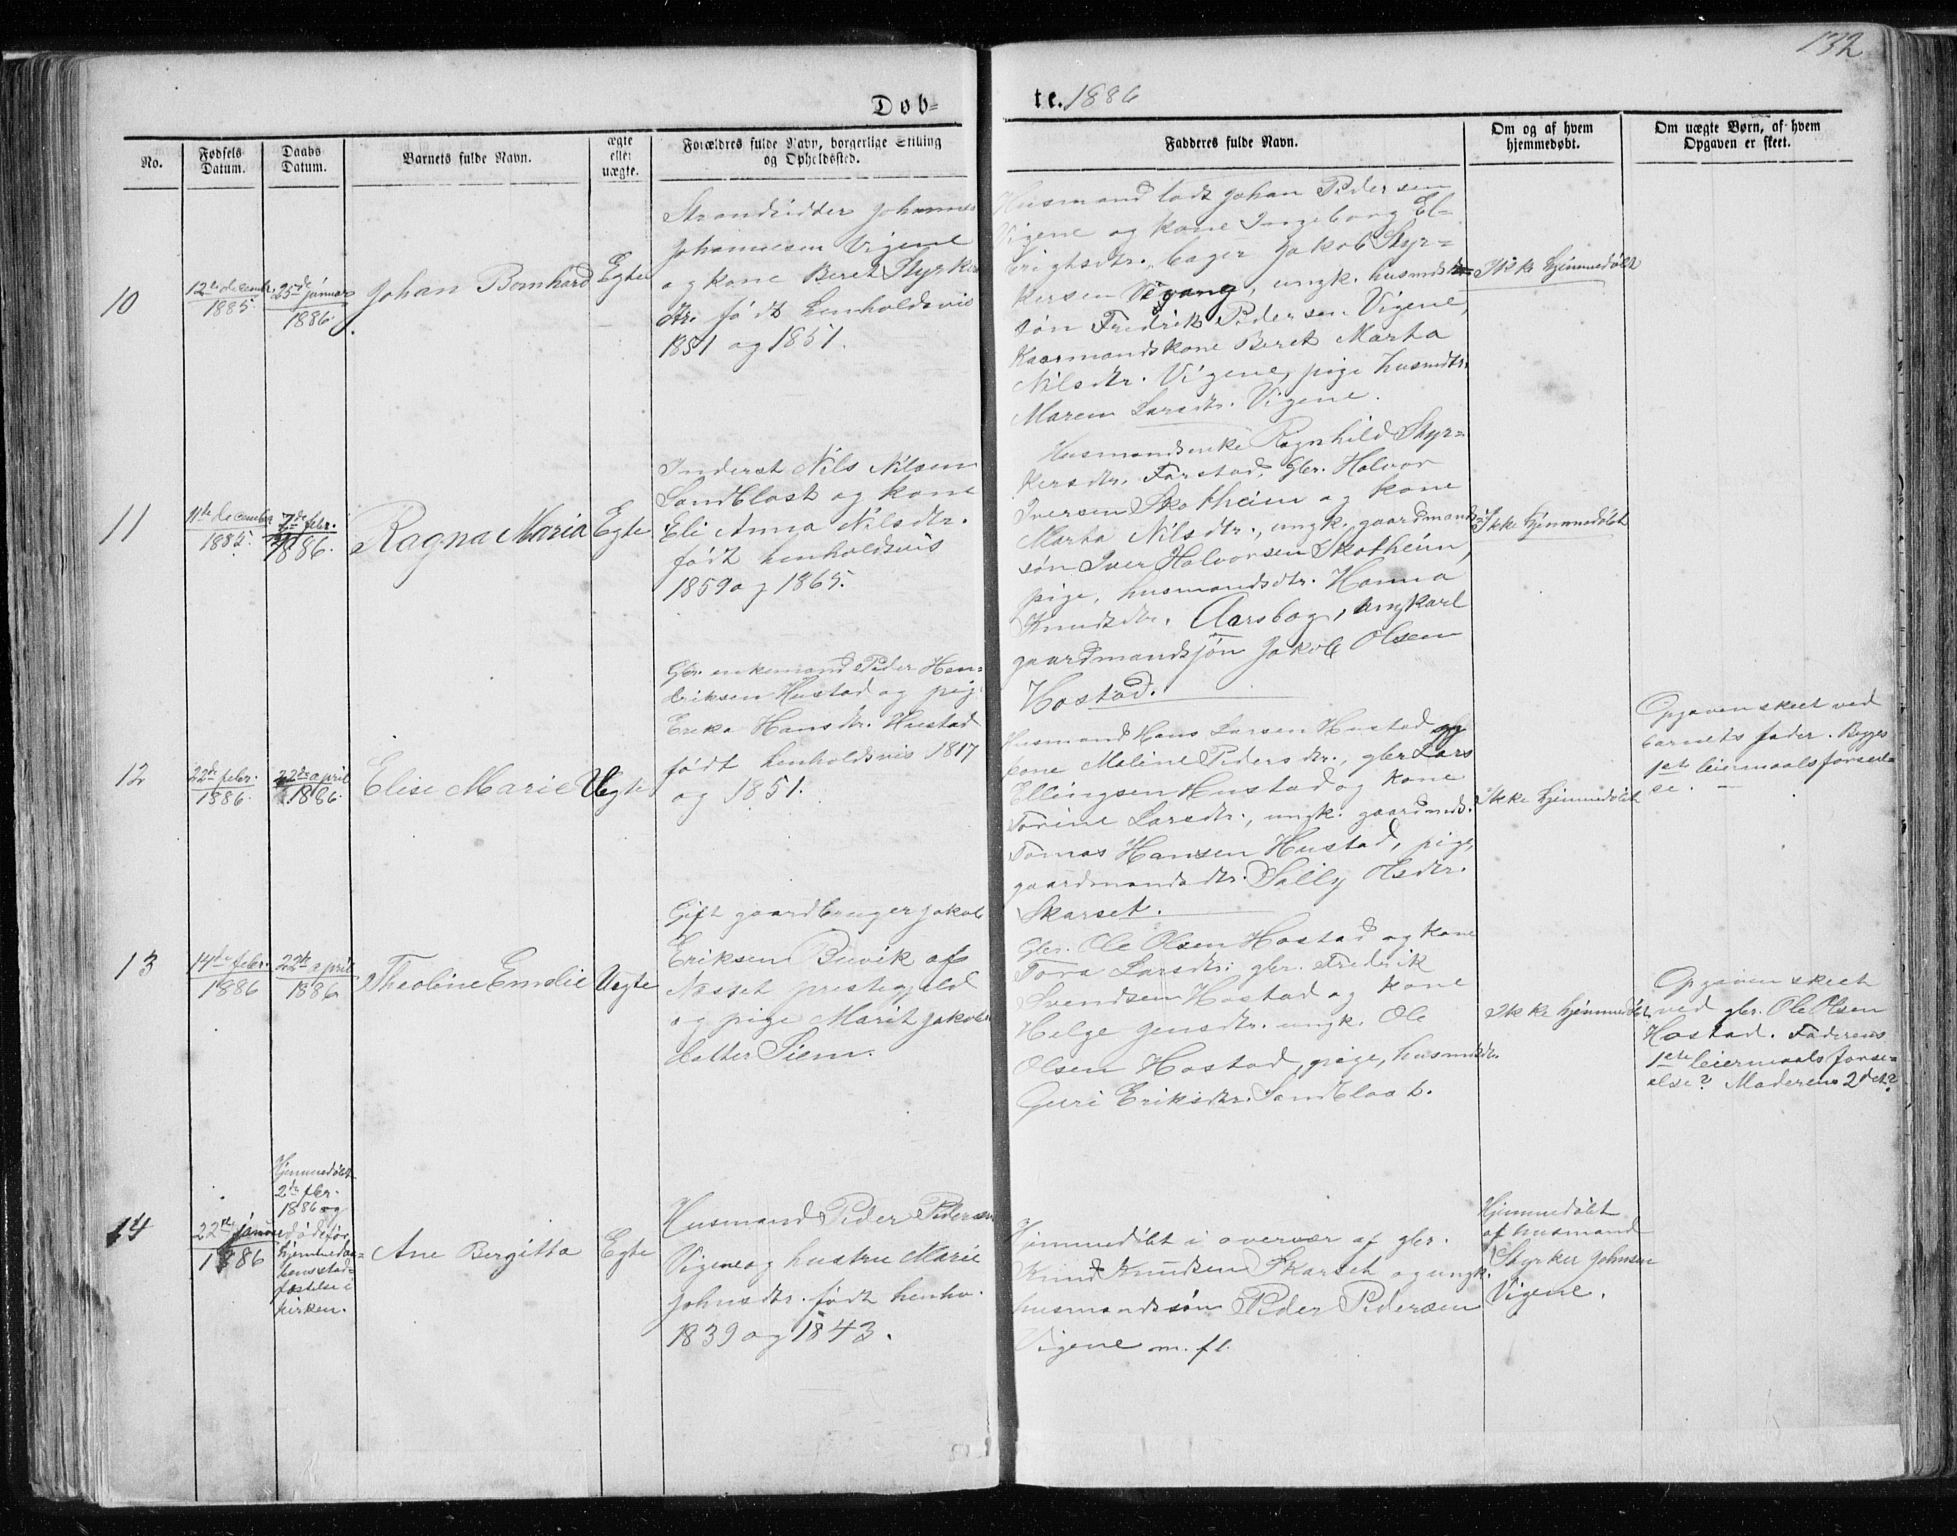 132
Døb-
te. 1886
No.
Fødsels
Datum.
Daabs
Datum.
Barnets fulde Navn.
ægte
eller
uægte.
Forældres fulde Navn, borgerlige Stilling
og Opholdssted.
Fadderes fulde Navn.
Om og af hvem
hjemmedøbt.
Om uægte Børn, af hvem
Opgaven er skeet.
10
12te decembr.
1885.
25de januar
1886.
Johan Bernhard
Egte
Strandsidder Johannes
Johannesen Vigene
og kone Beret Styrkers
dtr. født henholdsvis
1851 og 1851.
Husmand lods Johan Pedersen
Vigene og kone Ingeborg El-
Erightsdtr., bager Jakob Styr=
kersen Vigang, ungk. husmds
søn Fredrik Pedersen Vigene,
Kaarmandskone Beret Marta
Nilsdtr. Vigene, pige husmdtr.
Maren Larsdtr. Vigene.
Ikke hjemmedøbt
11
11te december
1885.
7de febr.
1886.
Ragna Maria
Egte
Inderst Nils Nilsen
Sandblost og kone
Eli Anna Nilsdtr.
født henholdsvis
1859 og 1865.
Husmandsenke Ragnhild Styr=
kersdtr. Farstad, gbr. Halvor
Iversen Skotheim og kone
Marta Nilsdtr., ungk. gaardmands
søn Iver Halvorsen Skotheim,
pige, husmandsdtr. Hanna
Knudsdtr. Aarsbog, ungkarl
gaardmandssøn Jakob Olsen
Hostad.
Ikke hjemmedøbt
12
22de febr.
1886.
22de april
1886.
Elise Marie
Uegte
Gbr. enkemand Peder Hen=
driksen Hustad og pige
Erika Hansdtr. Hustad
født henholdsvis 1817
og 1851.
Husmand Hans Larsen Hustad og
kone Meline Pedersdtr., gbr. Lars
Ellingsen Hustad og kone
Torine Larsdtr., ungk. gaardmds.
Tomas Hansen Hustad, pige,
gaardmandsdtr. Sally Olsdtr.
Skarset.
Ikke hjemmedøbt
Opgaven skeet ved
barnets fader. Begges
1ste leiermaalsforseel-
se. —
13
14de febr.
1886
22de april
1886
Theoline Emelie
Uegte
Gift gaardbruger Jakob
Eriksen Buvik af
Nesset prestegjeld
og pige Marit Jakobs
datter Siem.
Gbr. Ole Olsen Hostad og kone
Tora Larsdtr. gbr. Fredrik
Svendsen Hostad og kone
Helge Jensdtr. ungk. Ole
Olsen Hostad, pige, husmdsdtr.
Guri Eriksdtr. Sandblost.
Ikke hjemmedøbt
Opgaven skeet
ved gbr. Ole Olsen
Hostad. Faderens
1ste leiermaalsforse=
else? Moderens 2det?
14
22de januar
1886
Hjemmedøbt
2de febr.
1886 og
døde før
hjemmedaa=
bens stad=
fæstelse i
kirken.
Ane Bergitta
Egte
Husmand Peder Pedersen
Vigene og hustru Marie
Johnsdtr. født henho.
1839 og 1843.
Hjemmedøbt i overvær af gbr.
Knud Knudsen Skarset og ungk.
husmandssøn Peder Pedersen
Vigene m. fl.
Hjemmedøbt
af husmand
Styrker Johnsen
Vigene.